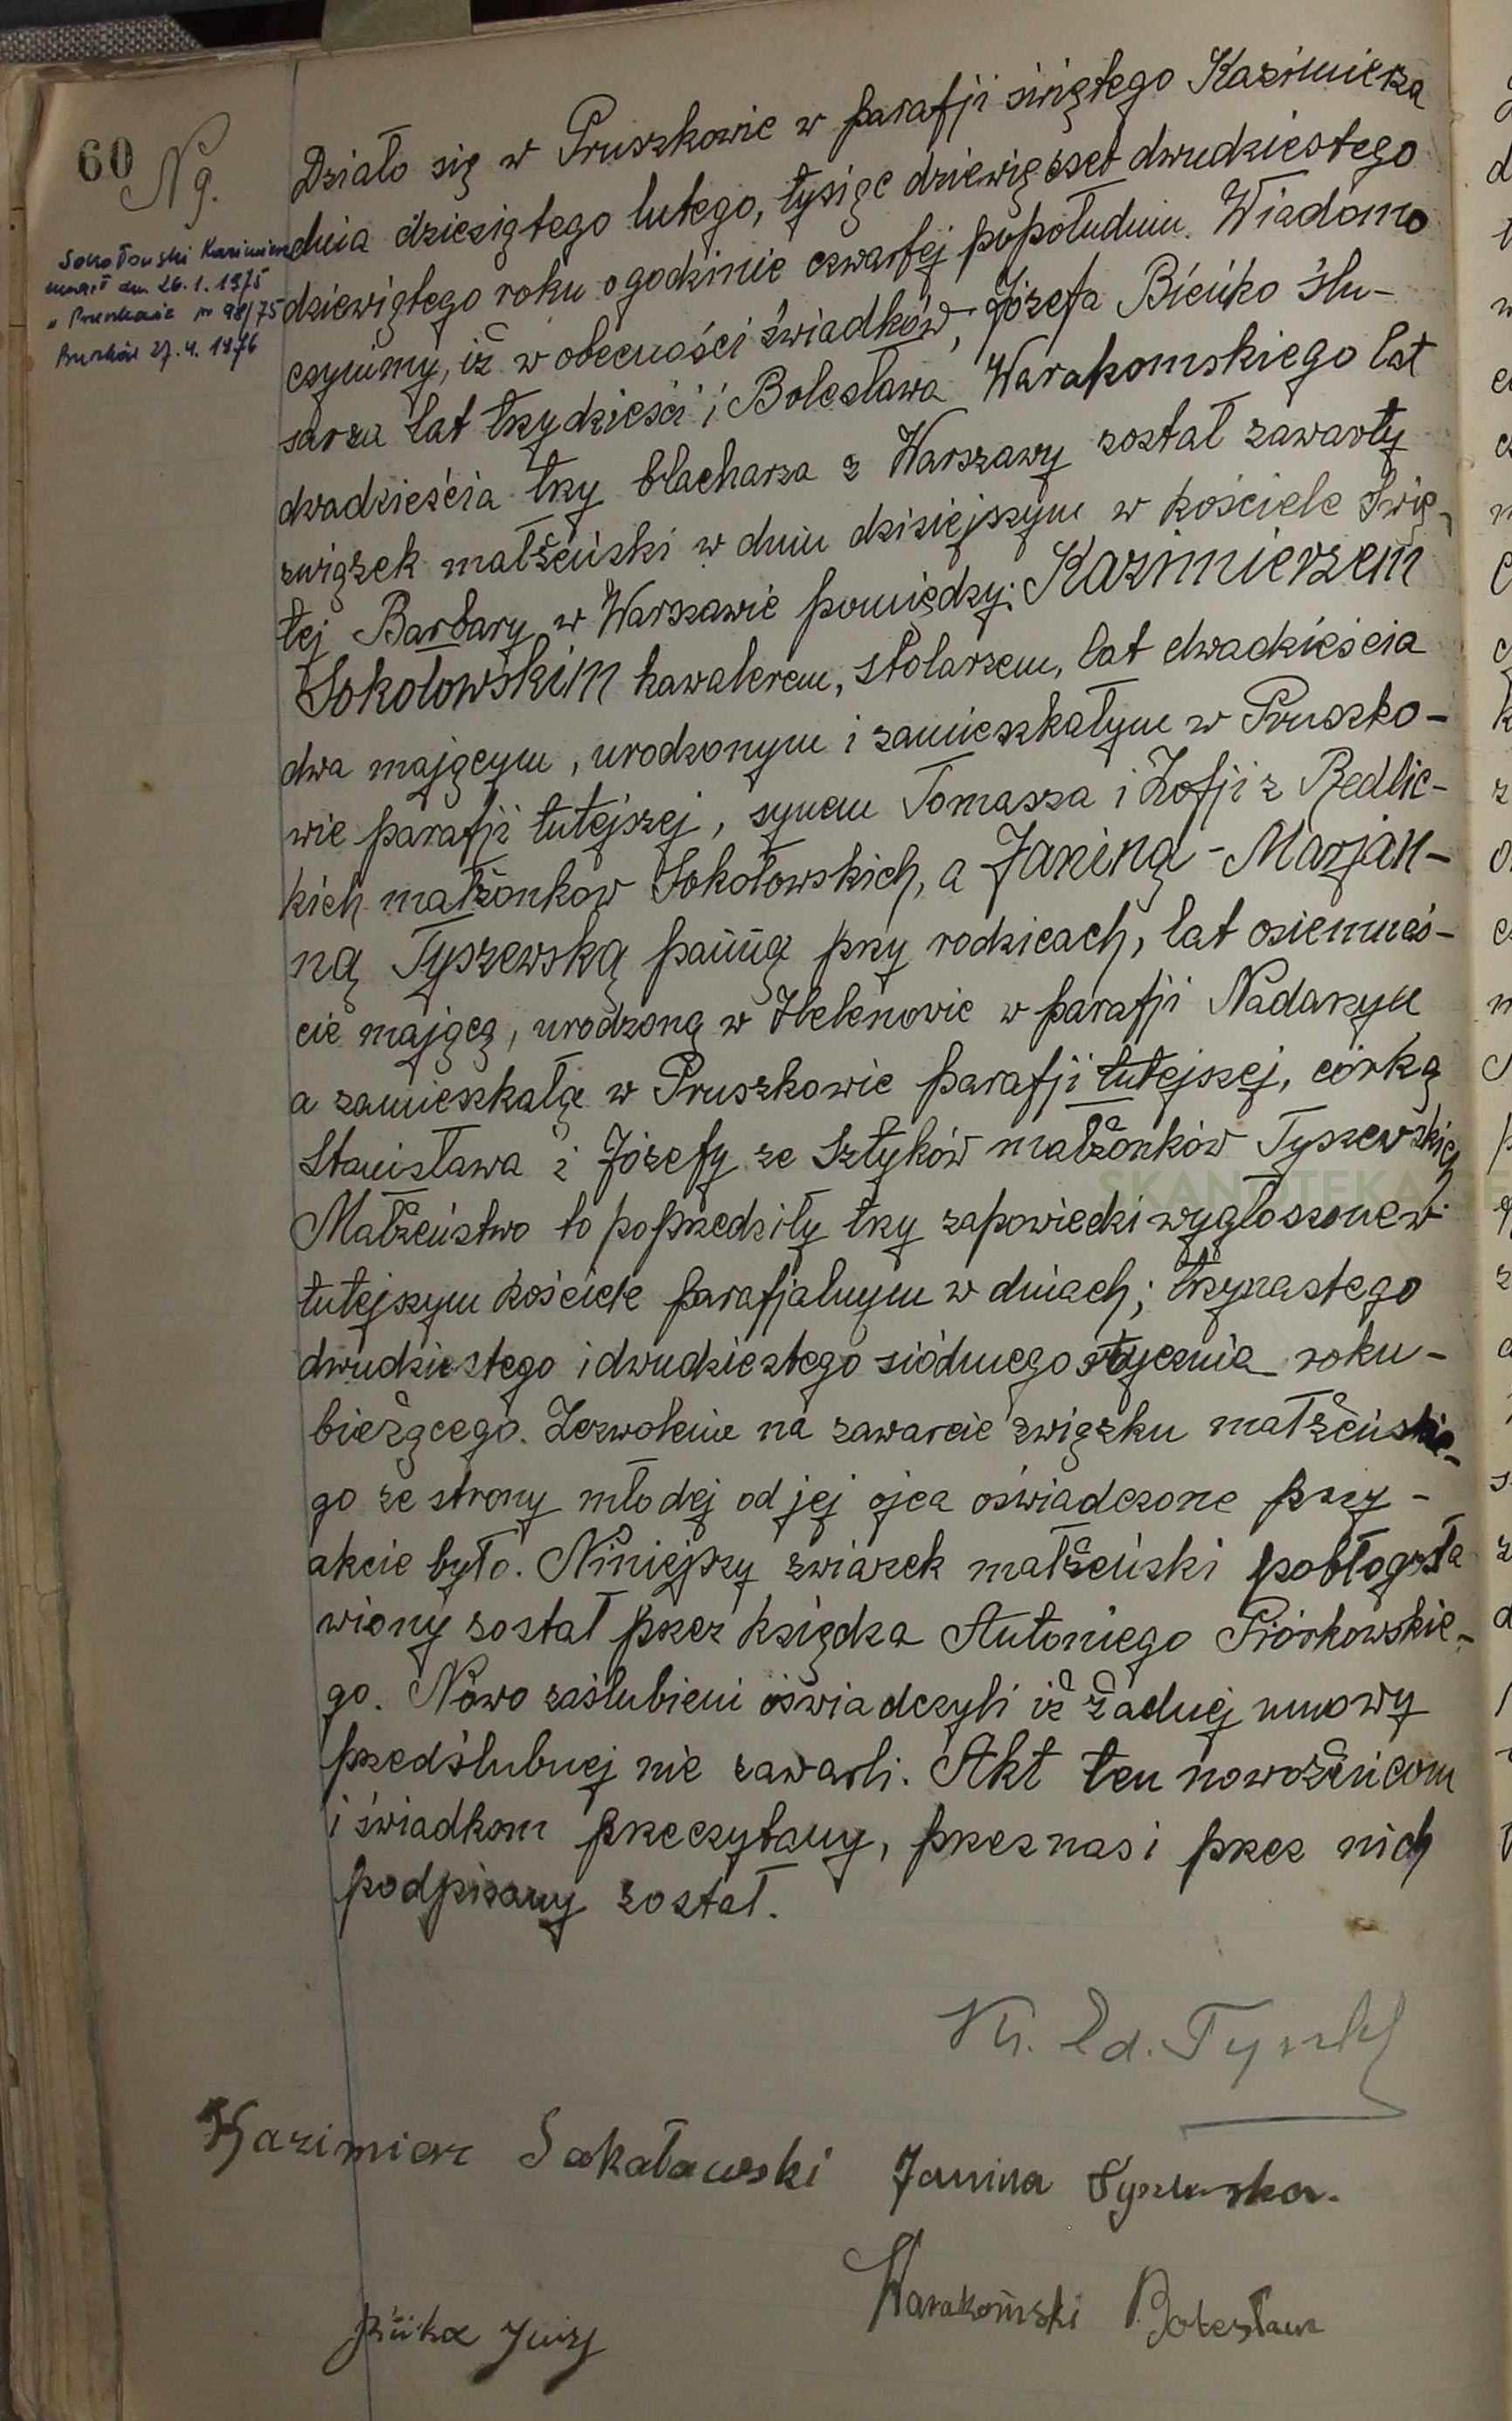 60 N 9.
Sokołowski Kazimierz
zmarł dn. 26.1.1975
w Pruszkowie nr 98/75
Pruszków 27.4.1976
Działo się w Pruszkowie w parafji świętego Kazimierza
dnia dziesiątego lutego, tysiąc dziewięćset dwudziestego
dziewiątego roku o godzinie czwartej popołudniu. Wiadomo
czynimy, iż w obecności świadków, Józefa Bieńko ślu-
sarza lat trzydzieści i Bolesława Warakomskiego lat
dwadzieścia trzy blacharza z Warszawy został zawarty
związek małżeński w dniu dzisiejszym w kościele Swię-
tej Barbary w Warszawie pomiędzy: Kazimierzem
Sokołowskim kawalerem, stolarzem, lat dwadzieścia
dwa mającym, urodzonym i zamieszkałym w Pruszko-
wie parafji tutejszej, synem Tomasza i Zofji z Redlic-
kich małżonków Sokołowskich, a Janiną-Marjan-
ną Tyszewską panną przy rodzicach, lat osiemnaś-
cie mającą, urodzoną w Helenowie w parafji Nadarzyn
a zamieszkałą w Pruszkowie parafji tutejszej, córką
Stanisława i Józefy ze Sztyków małżonków Tyszewskich
Małżeństwo to poprzedziły trzy zapowiedzi wygłoszone w
tutejszym kościele parafjalnym w dniach; trzynastego
dwudziestego i dwudziestego siódmego stycznia roku-
bieżącego. Zezwolenie na zawarcie związku małżeńskie-
go ze strony młodej od jej ojca oświadczone przy-
akcie było. Niniejszy zwiazek małżeński pobłogosła
wiony został przez księdza Antoniego Piórkowskie-
go. Nowo zaślubieni oświadczyli iż żadnej umowy
przedślubnej nie zawarli. Akt ten nowożeńcom
i świadkom przeczytany, przez nas i przez nich
podpisany został.
Ks. Ed. Tyszka
Kazimierz Sokołowski Janina Tyszewska.
Warakomski Bolesław
Bieńko Józef